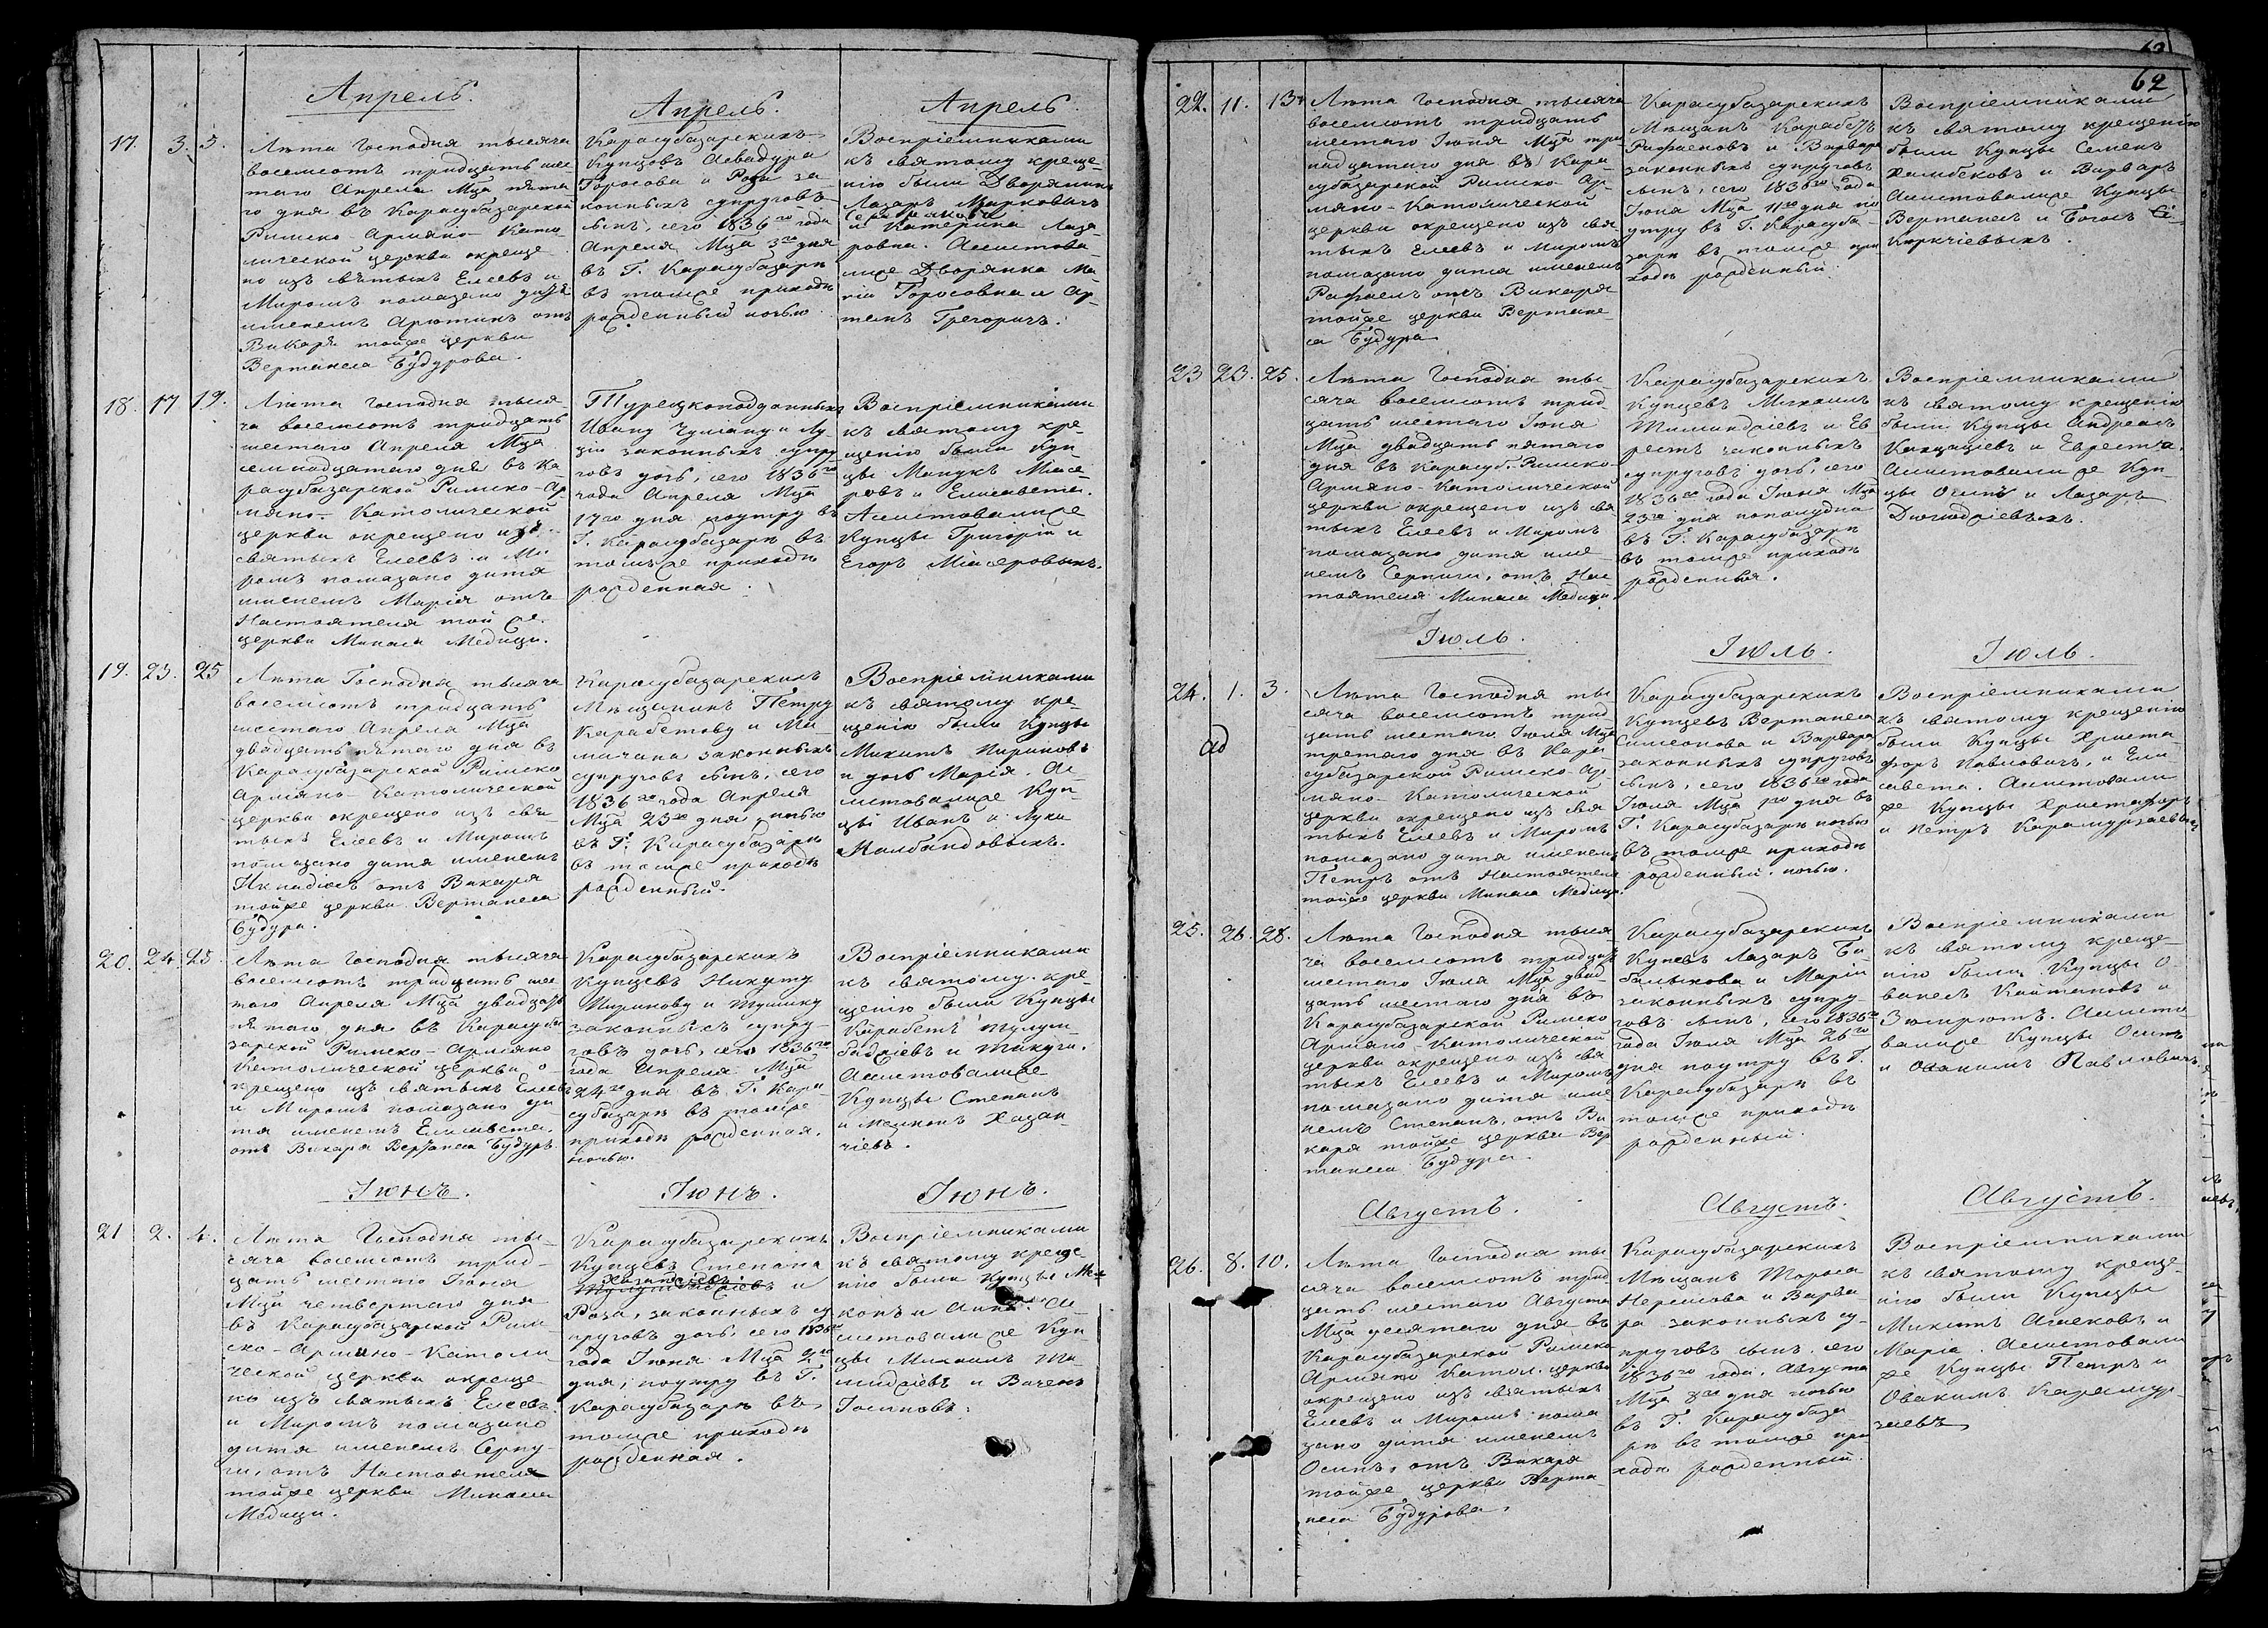 Апрель.
17. 3. 5.
Лѣта Господня тысяча
восемсотъ тридцать шес-
таго Апреля Мца пята-
го дня въ Карасубазарской
Римско-Армяно-Като-
лической церкви окреще-
но изъ святыхъ Елеевъ и
Миромъ помазано дитя
именемъ Арютинъ отъ
Викарія тойже церкви
Вертанеса Будурова.
Апрель.
Карасубазарскихъ
Купцовъ Асвадура
Торосова и Роза за-
конныхъ супруговъ
сынъ, сего 1836го года
Апреля Мца 3го дня
въ Г. Карасубазарѣ
въ томже приходѣ
рожденный ночью
Апрель
Воспріемниками
къ святому креще-
нію были Дворянинъ
Лазаръ Марковичъ
и Катерина Лаза-
ровна. Асистова-
лиже Дворянка Ма-
рія Торосовна и Ар-
темъ Грегоричъ.
18. 17 19.
Лѣта Господня тыся-
ча восемсотъ тридцать
шестаго Апреля Мца
семнадцатаго дня въ Ка-
расубазарской Римско-Ар-
мяно-Католической
церкви окрещено изъ
святыхъ Елеевъ и Ми-
ромъ помазано дитя
именемъ Марія отъ
Настоятеля той же
церкви Минаса Медици.
Турецкоподданныхъ
Ивану Чуліану и Лу-
ціи законныхъ супру-
говъ дочь, сего 1836го
года Апреля Мца
17го дня поутру въ
Г. Карасубазарѣ въ
томъже приходѣ
рожденная.
Воспріемниками
къ святому кре-
щенію были Куп-
цы Манукъ Місе-
ровъ и Елисавета.
Асистовалиже
Купцы Григорій и
Егоръ Місеровыхъ.
19. 23. 25
Лѣта Господня тысяча
восемсотъ тридцать
шестаго Апреля Мца
двадцать пятаго дня въ
Карасубазарской Римско
Армяно-Католической
церкви окрещено изъ свя-
тыхъ Елеевъ и Миромъ
помазано дитя именемъ
отъ Викаря
тойже церкви Вертанеса
Будура.
Карасубазарскихъ
Мѣщанинъ Петру
Карабетову и Ма-
ричана законныхъ
супруговъ сынъ, сего
1836го года Апреля
Мца 23го дня ночью
въ Г. Карасубазарѣ
въ томже приходѣ
рожденный.
Воспріемниками
къ святому кре-
щенію были Купцы
Микитъ Пириновъ
и дочь Марія. Ас-
истовалиже Куп-
цы Иванъ и Лука
Налбандовыхъ.
20. 24. 25.
Лѣта Господня тысяча
восемсотъ тридцать шес-
таго Апреля Мца двадцать
пятаго дня въ Карасуба-
зарской Римско-Армяно
Католической церкви о-
крещено изъ святыхъ Елеевъ
и Миромъ помазано ди-
тя именемъ Елисавета.
отъ Викаря Вертанеса Будуръ
Карасубазарскихъ
Купцевъ Никиту
Пиринову и Тушику
законныхъ супру-
говъ дочь, сего 1836го
года Апреля Мца
24го дня въ Г. Кара-
субазарѣ въ томже
приходѣ рожденная.
ночью.
Воспріемниками
къ святому кре-
щенію были Купцы
Карабетъ Тулум-
баджіевъ и
Асистовалиже
Купцы Степанъ
и Мелконъ Хазан-
чіевъ.
Іюнъ.
21 2. 4.
Лѣта Господня ты-
сяча восемсотъ трид-
цать шестаго Іюня
Мца четвертаго дня
въ Карасубазарской Рим-
ско-Армяно-Католи-
ческой церкви окреще-
но изъ святыхъ Елеевъ
и Миромъ помазано
дитя именемъ Серпу-
ги, отъ Настоятеля
тойже церкви Минаса
Медици.
Іюнъ.
Карасубазарскихъ
Купцевъ Степана
Хазанджіевъ
Тулумбаджіевъ и
Роза, законныхъ су-
пруговъ дочь, сего 1836го
года Іюня Мца 2го
дня, поутру въ Г.
Карасубазарѣ въ
томже приходѣ
рожденная.
Іюнъ.
Воспріемниками
къ святому креще-
нію были Купцы Мел-
конъ и Анна. Ас-
истовалиже Куп-
цы Михаилъ Ти-
миджіевъ и
62
22. 11. 13.
Лѣта Господня тысяча
восемсотъ тридцать
шестаго Іюня Мца три-
надцатаго дня въ Кара-
субазарской Римско-Ар-
мяно-Католической
церкви окрещено изъ свя-
тыхъ Елеевъ и Миромъ
помазано дитя именемъ
Рафаелъ отъ Викаря
тойже церкви Вертане-
са Будура
Карасубазарскихъ
Мѣщанъ Карабетъ
Рафаеловъ и Варвара
законныхъ супруговъ
сынъ, сего 1836го года
Іюня Мца 11го дня по
утру въ Г. Карасуба-
зарѣ въ томже при-
ходѣ рожденный.
Воспріемниками
къ святому крещенію
были Купцы Семенъ
Хамбековъ и Варваръ
Асистовалиже Купцы
Вертанесъ и Богосъ
Киркчіевыхъ.
23 23. 25.
Лѣта Господня ты-
сяча восемсотъ трид-
цать шестаго Іюня
Мца двадцать пятаго
дня въ Карасуб. Римско-
Армяно-Католической
церкви окрещено изъ свя-
тыхъ Елеевъ и Миромъ
помазано дитя име-
немъ Серпуги, отъ Нас-
тоятеля Минаса Медици.
Карасубазарскихъ
Купцевъ Михаилъ
Тимиджіевъ и Ев-
ресть законныхъ
супруговъ дочь, сего
1836го года Іюня Мца
23го дня пополудна
въ Г. Карасубазарѣ
въ томже приходѣ
рожденныя.
Воспріемниками
къ святому крещенію
были Купцы Андреасъ
и Евреста.
Асистовалиже Куп-
цы Осипъ и Лазаръ
Іюль.
24. 1. 3.
Лѣта Господня ты-
сяча восемсотъ трид-
цать шестаго Іюля Мца
третаго дня въ Кара-
субазарской Римско-Ар-
мяно-Католической
церкви окрещено изъ свя-
тыхъ Елеевъ и Миромъ
помазано дитя именемъ
Петръ отъ Настоятеля
тойже церкви Минаса Медици.
Іюль.
Карасубазарскихъ
Купцевъ Вертанеса
Симеонова и Варвара
законныхъ супруговъ
сынъ, сего 1836го года
Іюля Мца 1го дня въ
Г. Карасубазарѣ ночью
въ томже приходѣ
рожденный. ночью.
Іюль.
Воспріемниками
къ святому крещенію
были Купцы Христо-
форъ Павловичъ, и Ели-
савета. Асистовали-
же Купцы Христофоръ
и Петръ Карамурзаевыхъ
25. 26. 28.
Лѣта Господня тыся-
ча восемсотъ тридцать
шестаго Іюля Мца двад-
цать шестаго дня въ
Карасубазарской Римско
Армяно-Католической
церкви окрещено изъ свя-
тыхъ Елеевъ и Миромъ
помазано дитя име-
немъ Степанъ, отъ Ви-
каря тойже церкви Вер-
танеса Будура.
Карасубазарскихъ
Купевъ Лазаръ Ба-
балыкова и Маріи
законныхъ супру-
говъ сынъ, сего 1836го
года Іюля Мца 26го
дня поутру въ Г.
Карасубазарѣ въ
томже приходѣ
рожденный.
Воспріемниками
къ святому креще-
нію были Купцы О-
ванесъ Кайтановъ и
Зюмрютъ. Асисто-
валиже Купцы Осипъ
и Овакимъ Павловичъ.
Августъ.
26. 8. 10.
Лѣта Господня ты-
сяча восемсотъ трид-
цать шестаго Августа
Мца десятаго дня въ
Карасубазарской Римско
Армяно Катол. церкви
окрещено изъ святыхъ
Елеевъ и Миромъ пома-
зано дитя именемъ
Осипъ, отъ Викаря
тойже церкви Верта-
неса Будурова.
Августъ.
Карасубазарскихъ
Мѣщанъ Тороса
Нерсесова и Варва-
ра законныхъ су-
пруговъ сынъ, сего
1836го года, Августа
Мца 8го дня ночью
въ Г. Карасубаза-
рѣ въ томже при-
ходѣ рожденный.
Августъ.
Воспріемниками
къ святому креще-
нію были Купцы
Микитъ и
Марія. Асистовали-
же Купцы Петръ и
Овакимъ Карамур-
заевъ